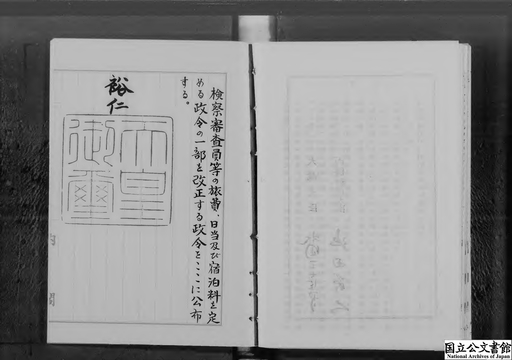 検察審査員等の旅費、日当及び宿泊料を定
める政令の一部を改正する政令をここに公布
する。
裕仁
天皇
御璽
国立公文書館
National Archives of Japan